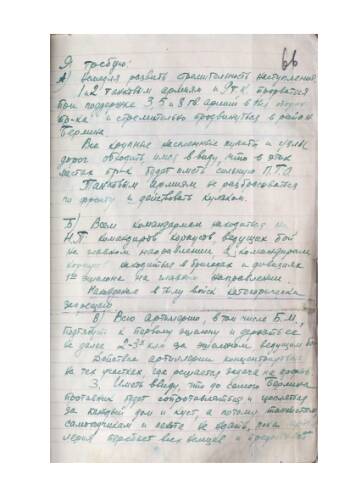 66
Я требую:
А) Немедля развить стремительность наступления.
1 и 2 танковым армиям и 9 т.к. прорваться
при поддержке 3, 5 и 8 гв. армии в тыл
пр-ка и стремительно продвинуться в район
Берлина.
Все крупные населенные пункты и узлы
дорог обходить, имея в виду, что в этих
местах пр-к будет иметь сильную П.Т.О.
Танковым армиям не разбрасываться
по фронту и действовать кулаком.
Б) Всем командармам находиться на
Н.П. командиров корпусов, ведущих бой
на главном направлении, а командирам
корпусов находиться в бригадах и дивизиях
1го эшелона на главном направлении.
Нахождение в тылу войск категорически
запрещаю.
В) Всю артиллерию в том числе Б.М.
подтянуть к первому эшелону и держать ее
не далее 2-3х км за эшелоном ведущим
Действия артиллерии концентрировать
на тех участках, где решается задача на прорыв.
3. Иметь ввиду, что до самого Берлина
противник будет сопротивляться и цепляться
за каждый дом и куст, а потому танкистам
самоходчикам и пехоте не ждать, пока
лерия перебьет всех немцев и